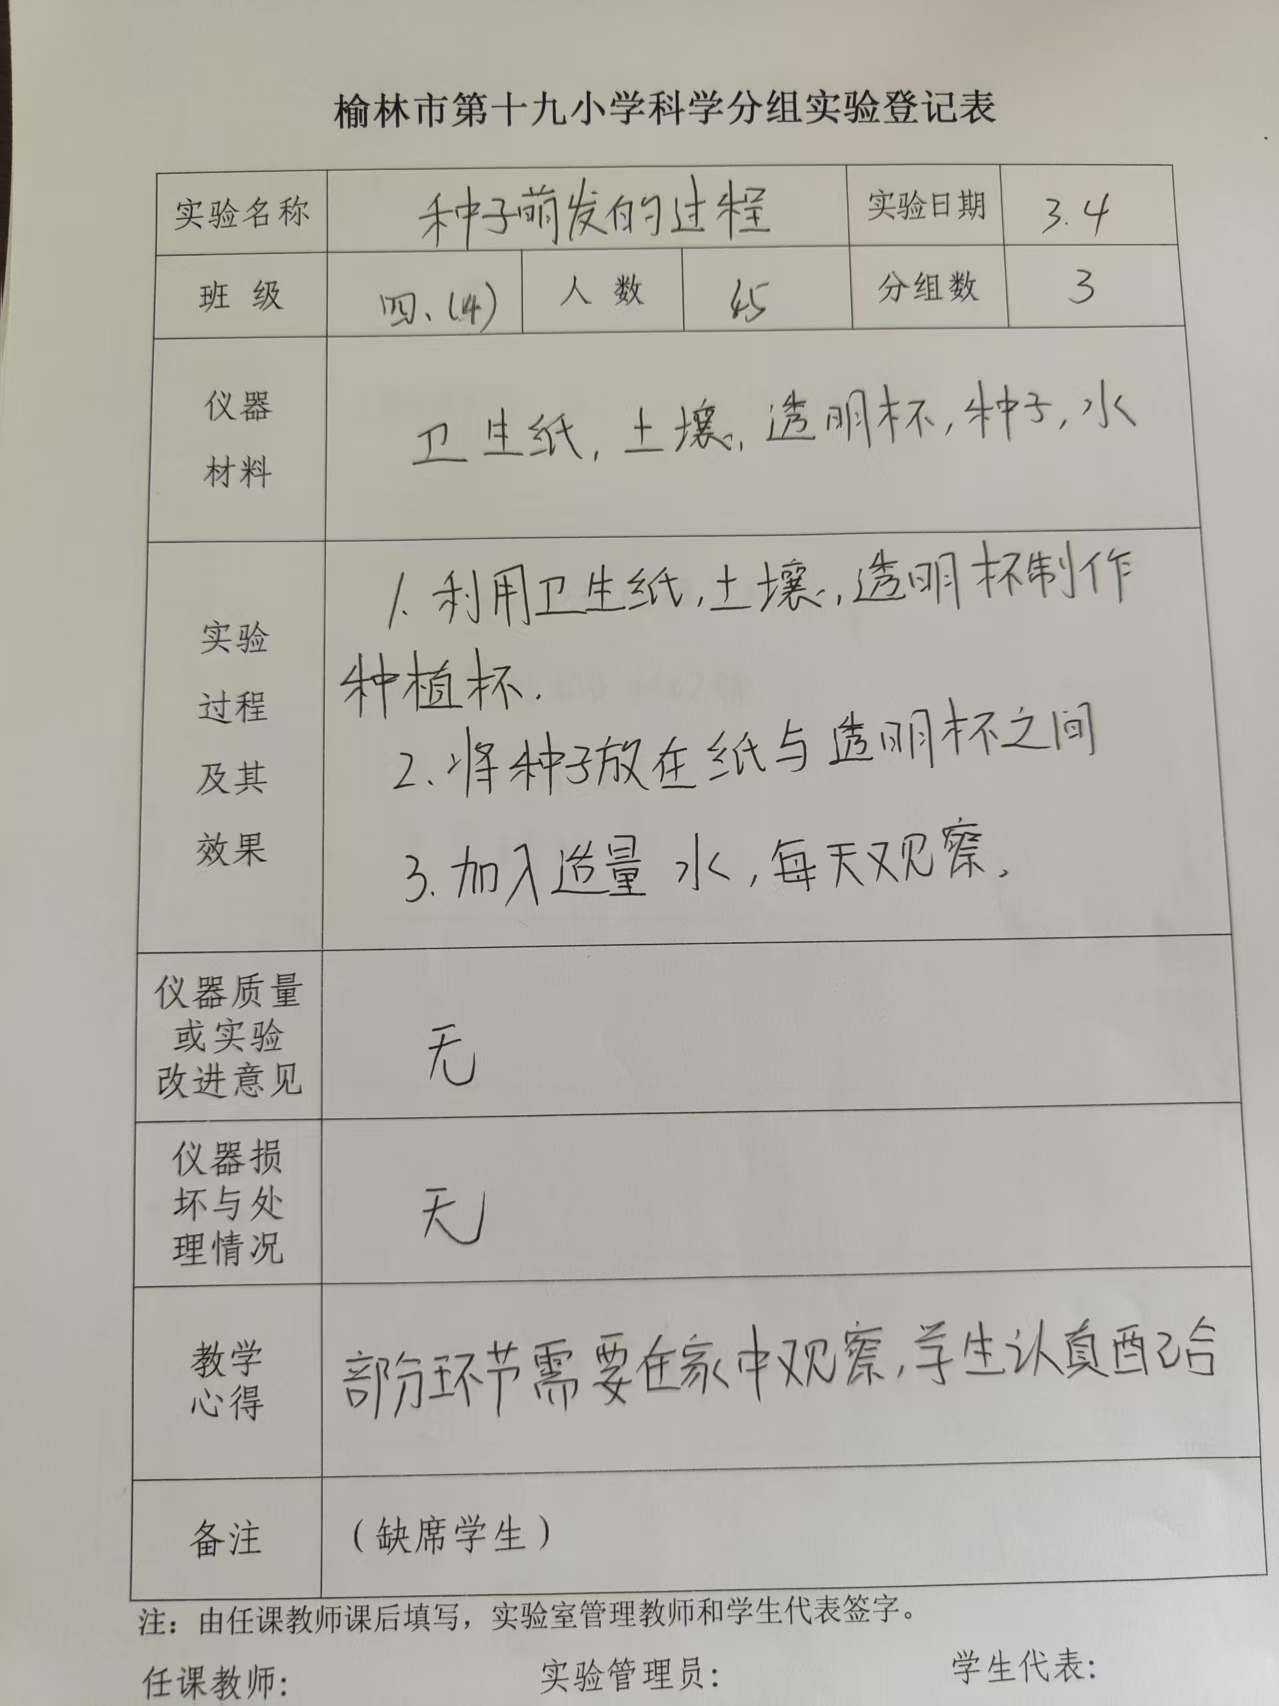 榆林市第十九小学科学分组实验登记表
实验名称 种子萌发的过程 实验日期 3.4
班级 四、(4) 人数 45 分组数 3
仪器
材料
卫生纸,土壤,透明杯,种子,水
实验
过程
及其
效果
1.利用卫生纸,土壤,透明杯制作
种植杯.
2.将种子放在纸与透明杯之间
3.加入适量水,每天观察.
仪器质量
或实验
改进意见
无
仪器损
坏与处
理情况
无
教学
心得
部分环节需要在家中观察,学生认真配合
备注 (缺席学生)
注:由任课教师课后填写,实验室管理教师和学生代表签字。
任课教师: 实验管理员: 学生代表: